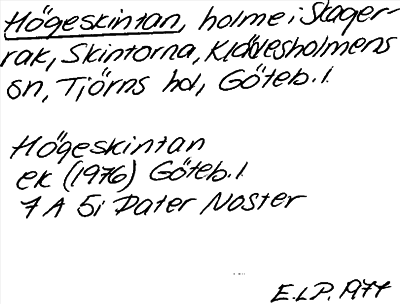 Högeskintan, holme i Skager-
rak, Skintorna, Klövesholmens
sn, Tjörns hd, Göteb. l.
Högeskintan
ek (1976) Göteb. l
7 A 5i Pater Noster
E.L.P. 1977